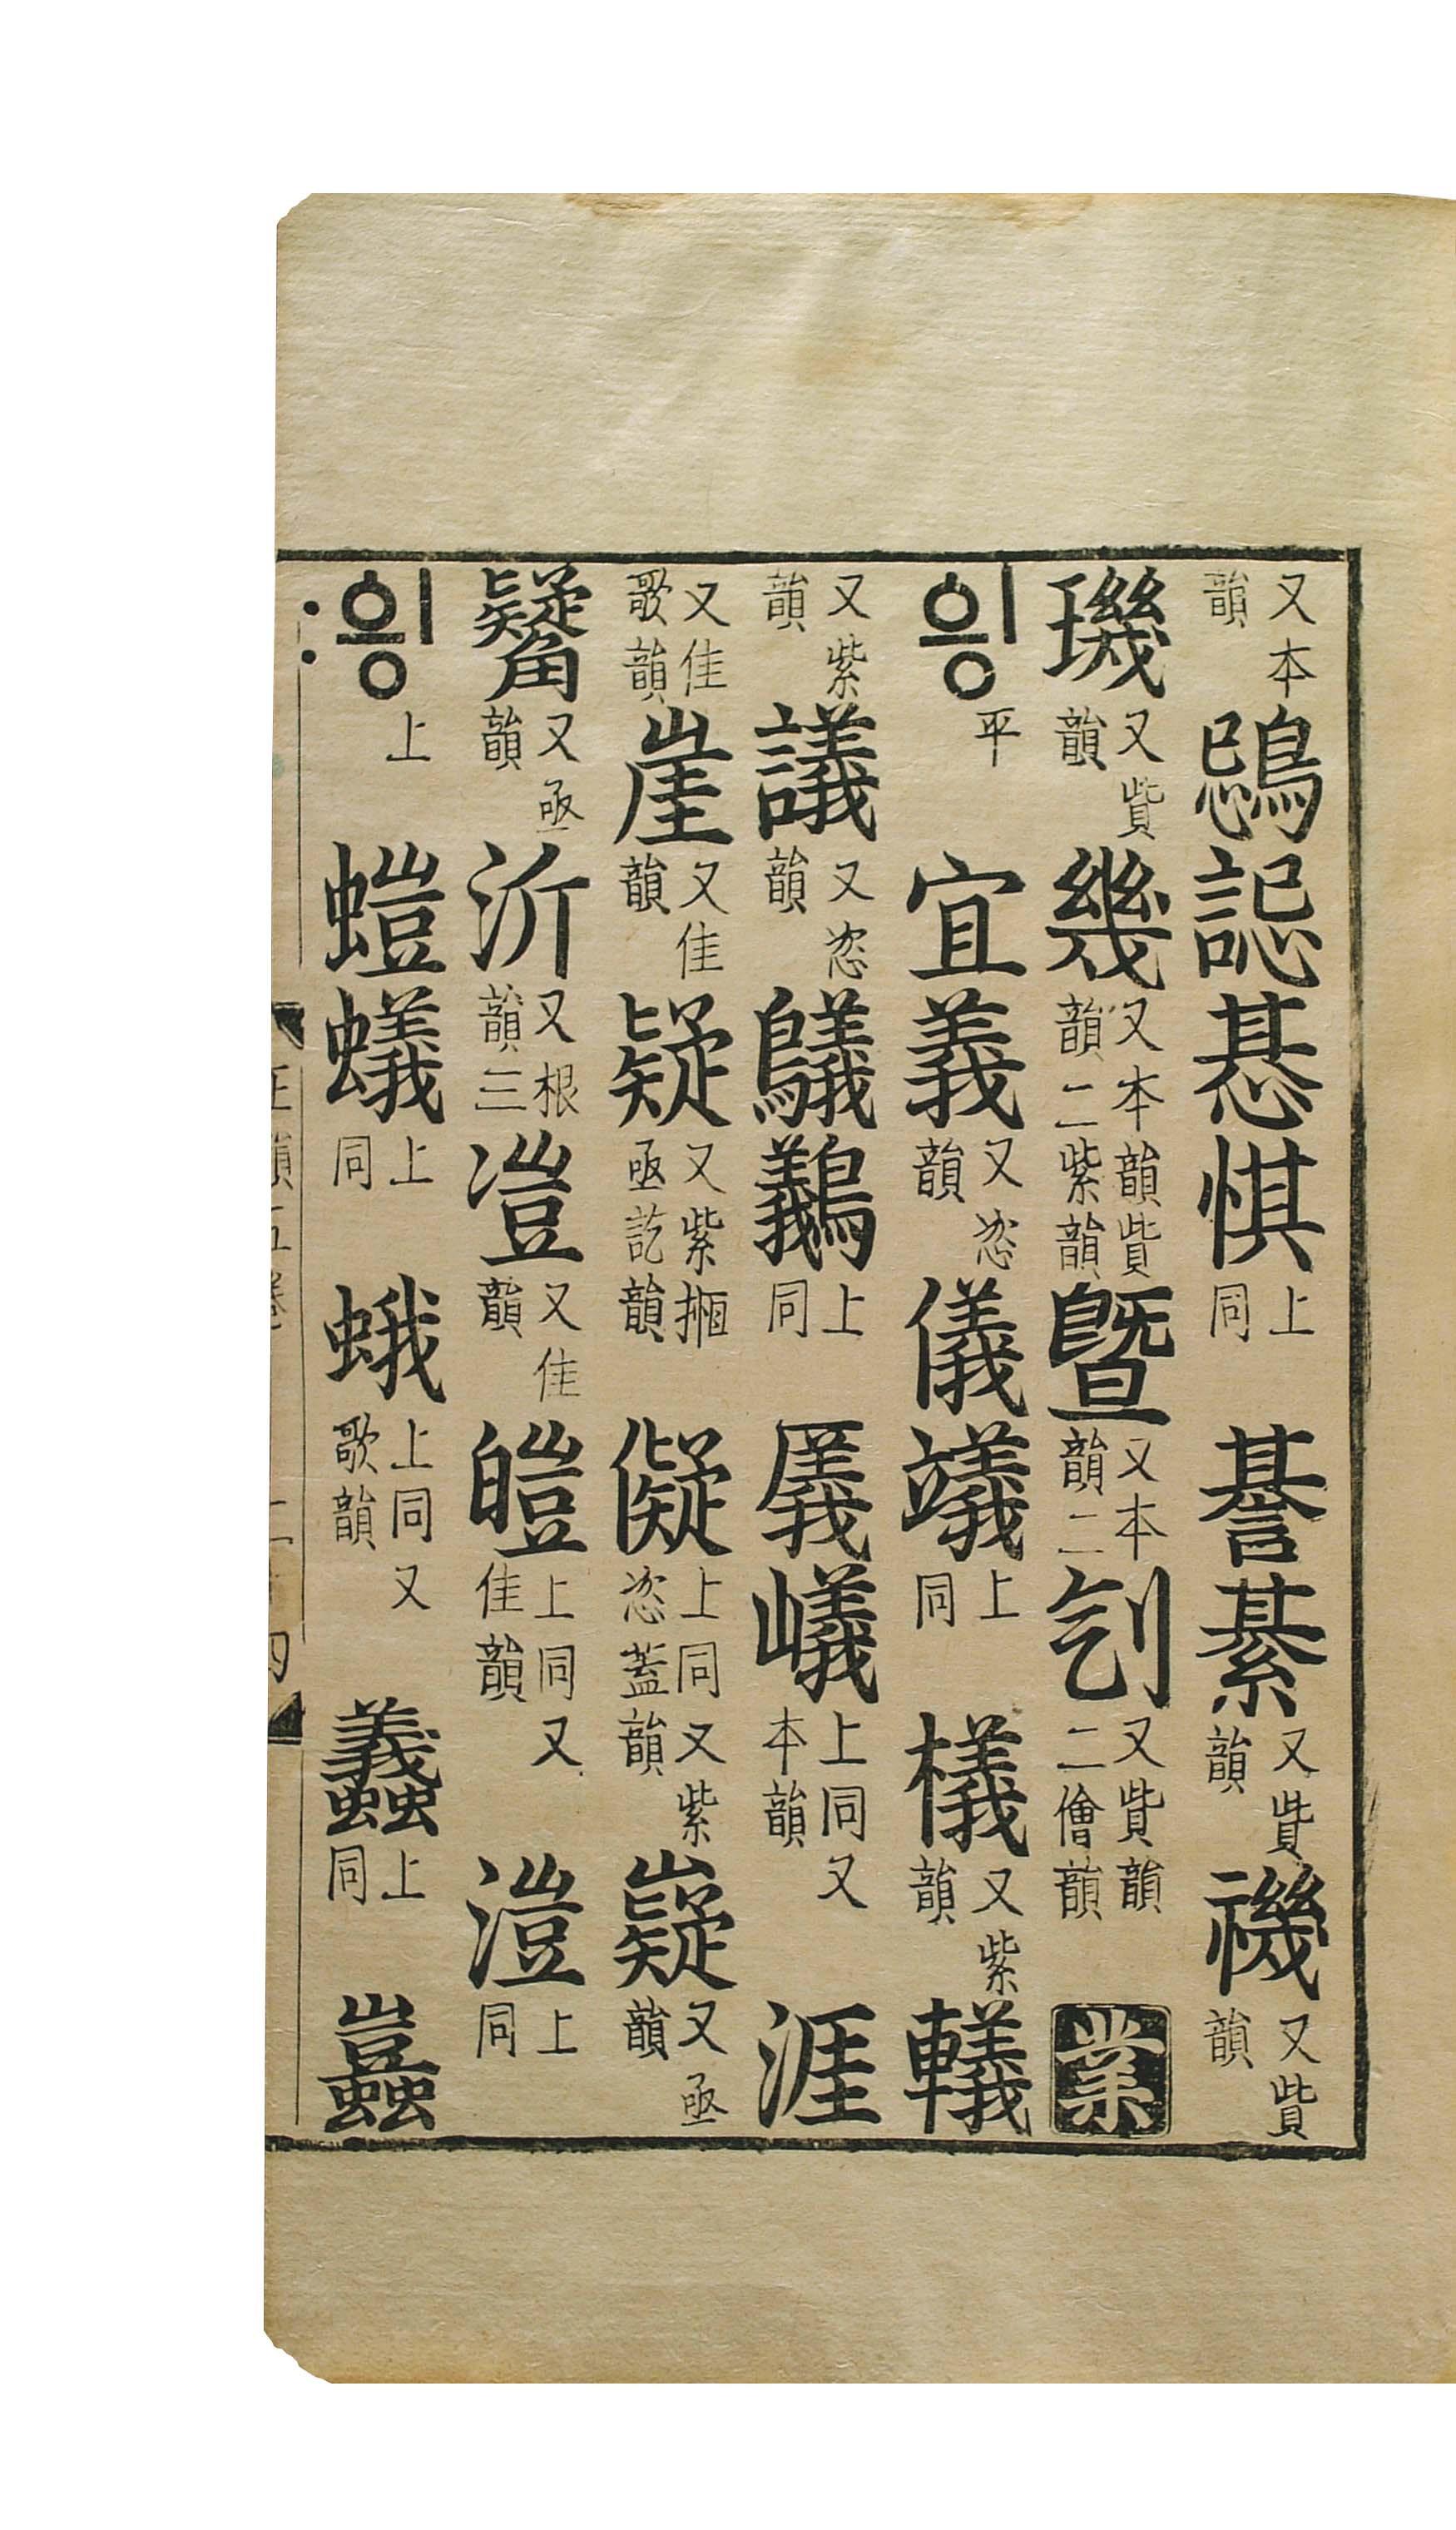 又本韻 鵋 誋 惎 惎 上同 諅 綦 又貲韻 禨 又貲韻
璣 又貲韻 幾 又本韻貲韻二紫韻 曁 又本韻二 刉 又貲韻二儈韻 業
ᅌᅴᆼ 平 宜 義 又恣韻 儀 𥪰 上同 檥 又紫韻 轙
又紫韻 議 又恣韻 鸃 鸃 上同 㕒 嶬 上同又本韻 涯
又佳歌韻 崖 又佳韻 疑 又紫搄亟訖韻 儗 上同又紫恣蓋韻 嶷 又亟韻
觺 又亟韻 沂 又根韻三 凒 又佳韻 皚 上同又佳韻 溰 上同
〯ᅌᅴᆼ 上 螘 蟻 上同 蛾 上同又歌韻 蠭 上同